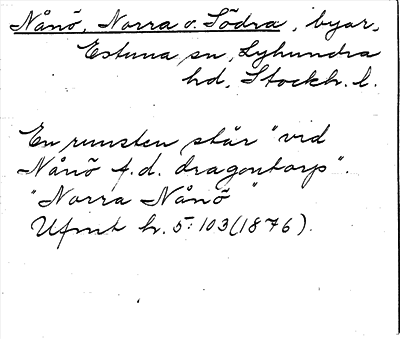 Nånö, Norra o. Södra, byar,
Estuna sn, Lyhundra
hd, Stockh. l.
En runsten står "vid
Nånö f.d. dragontorp".
"Norra Nånö"
Ufmt h. 5:103 (1876).